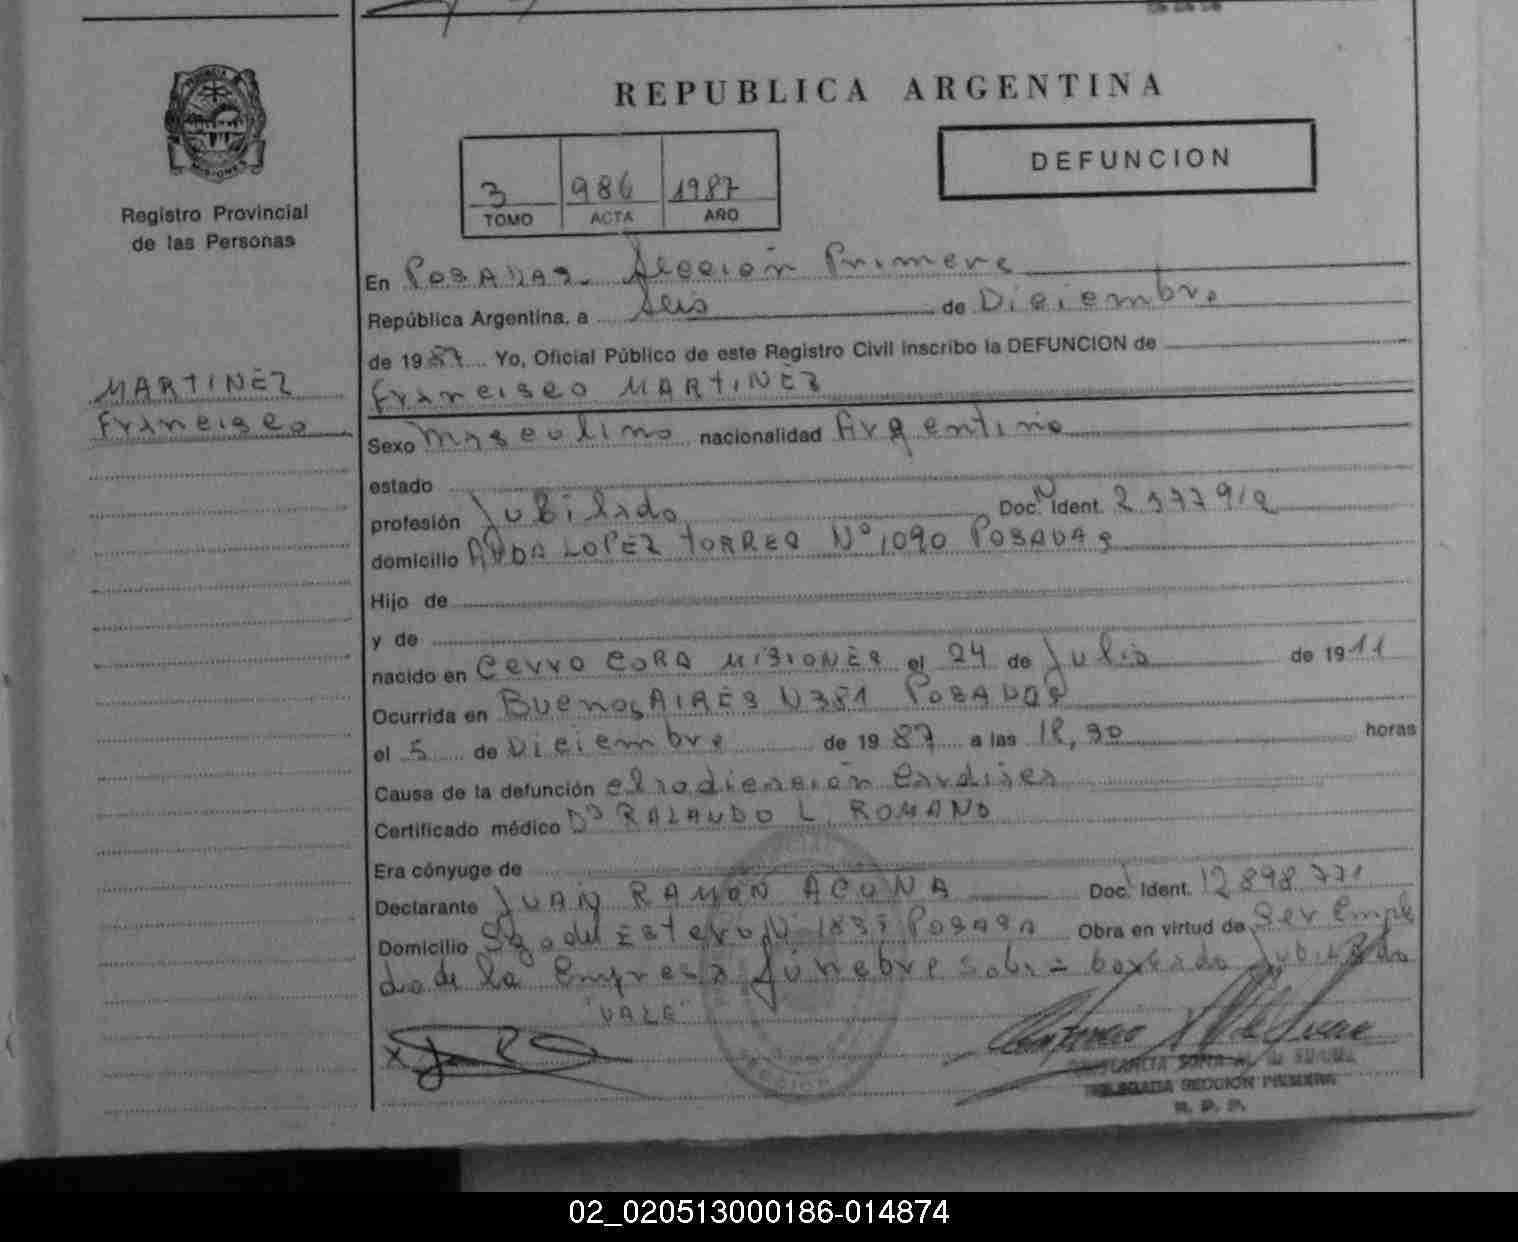 REPUBLICA ARGENTINA
DEFUNCION
3 986 1987
TOMO ACTA AÑO
Registro Provincial
de las Personas
MARTINEZ
Francisco
En POSADAS Sección Primera
República Argentina, a Seis de Diciembre
de 1987 Yo, Oficial Público de este Registro Civil inscribo la DEFUNCION de
Francisco MARTINEZ
Sexo Masculino nacionalidad Argentino
estado
profesión Jubilado Doc. Ident.
domicilio AVDA LOPEZ TORRES Nº 1090 POSADAS
Hijo de
y de
nacido en Cerro CORA MISIONES el 24 de Julio de 1911
Ocurrida en BuenosAIRES N POSADAS
el 5 de Diciembre de 1987 a las horas
Causa de la defunción
Certificado médico L. ROMANO
Era cónyuge de
Declarante JUAN RAMON ACUÑA Doc. Ident. 12898771
Domicilio Sgo del Estero Obra en virtud de Ser Emple
do de la Empresa fúnebre Jubilado
"VALE"
SECCION PRIMERA
R. P. P.
02_020513000186-014874